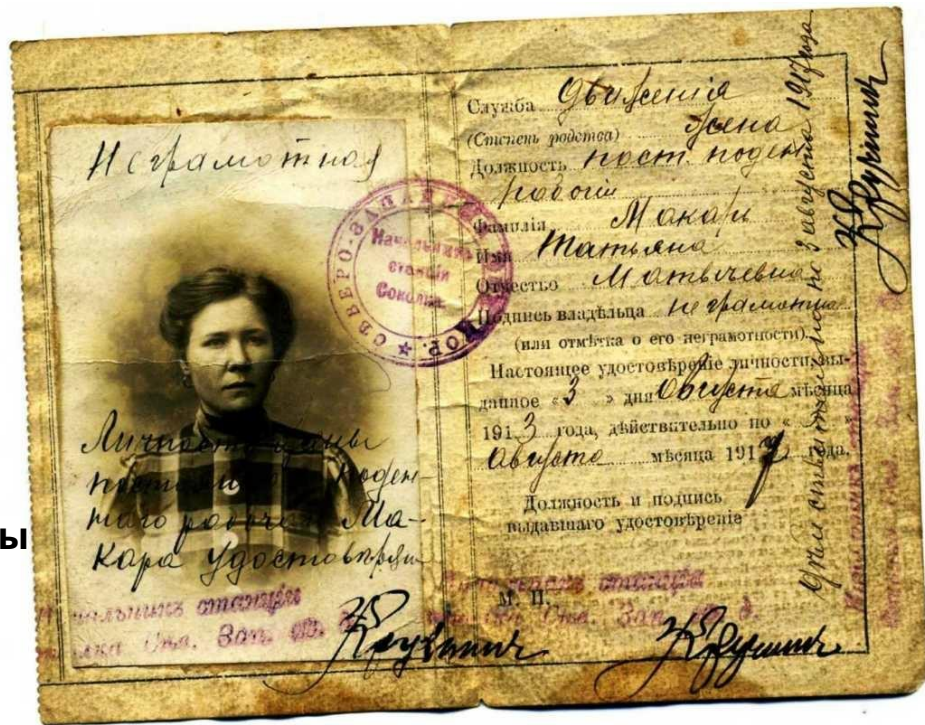 Неграмотная
Личность жены
постоянного поден-
наго рабочаго Ма-
кара удостоверяю
Начальникъ станцiи
Сѣв. Зап. ж. д.
ы
СѢВЕРО-ЗАПАДН
ДОР.
Начальникъ
станцiи
Соколка
Служба Движенiя
(Степень родства) жена
Должность пост. поден
рабочiй
Фамилiя Макаръ
Имя Татьяна
Отчество Матвѣевна
Подпись владѣльца неграмотна
(или отмѣтка о его неграмотности)
Настоящее удостовѣренiе личности, вы-
данное «3» дня Августа мѣсяца
1913 года, дѣйствительно по «
Августа мѣсяца 1917 года.
Должность и подпись
выдавшаго удостовѣренiе
М. П.
Начальникъ станцiи
Сѣв. Зап. ж. д.
по 3 августа 1917 года